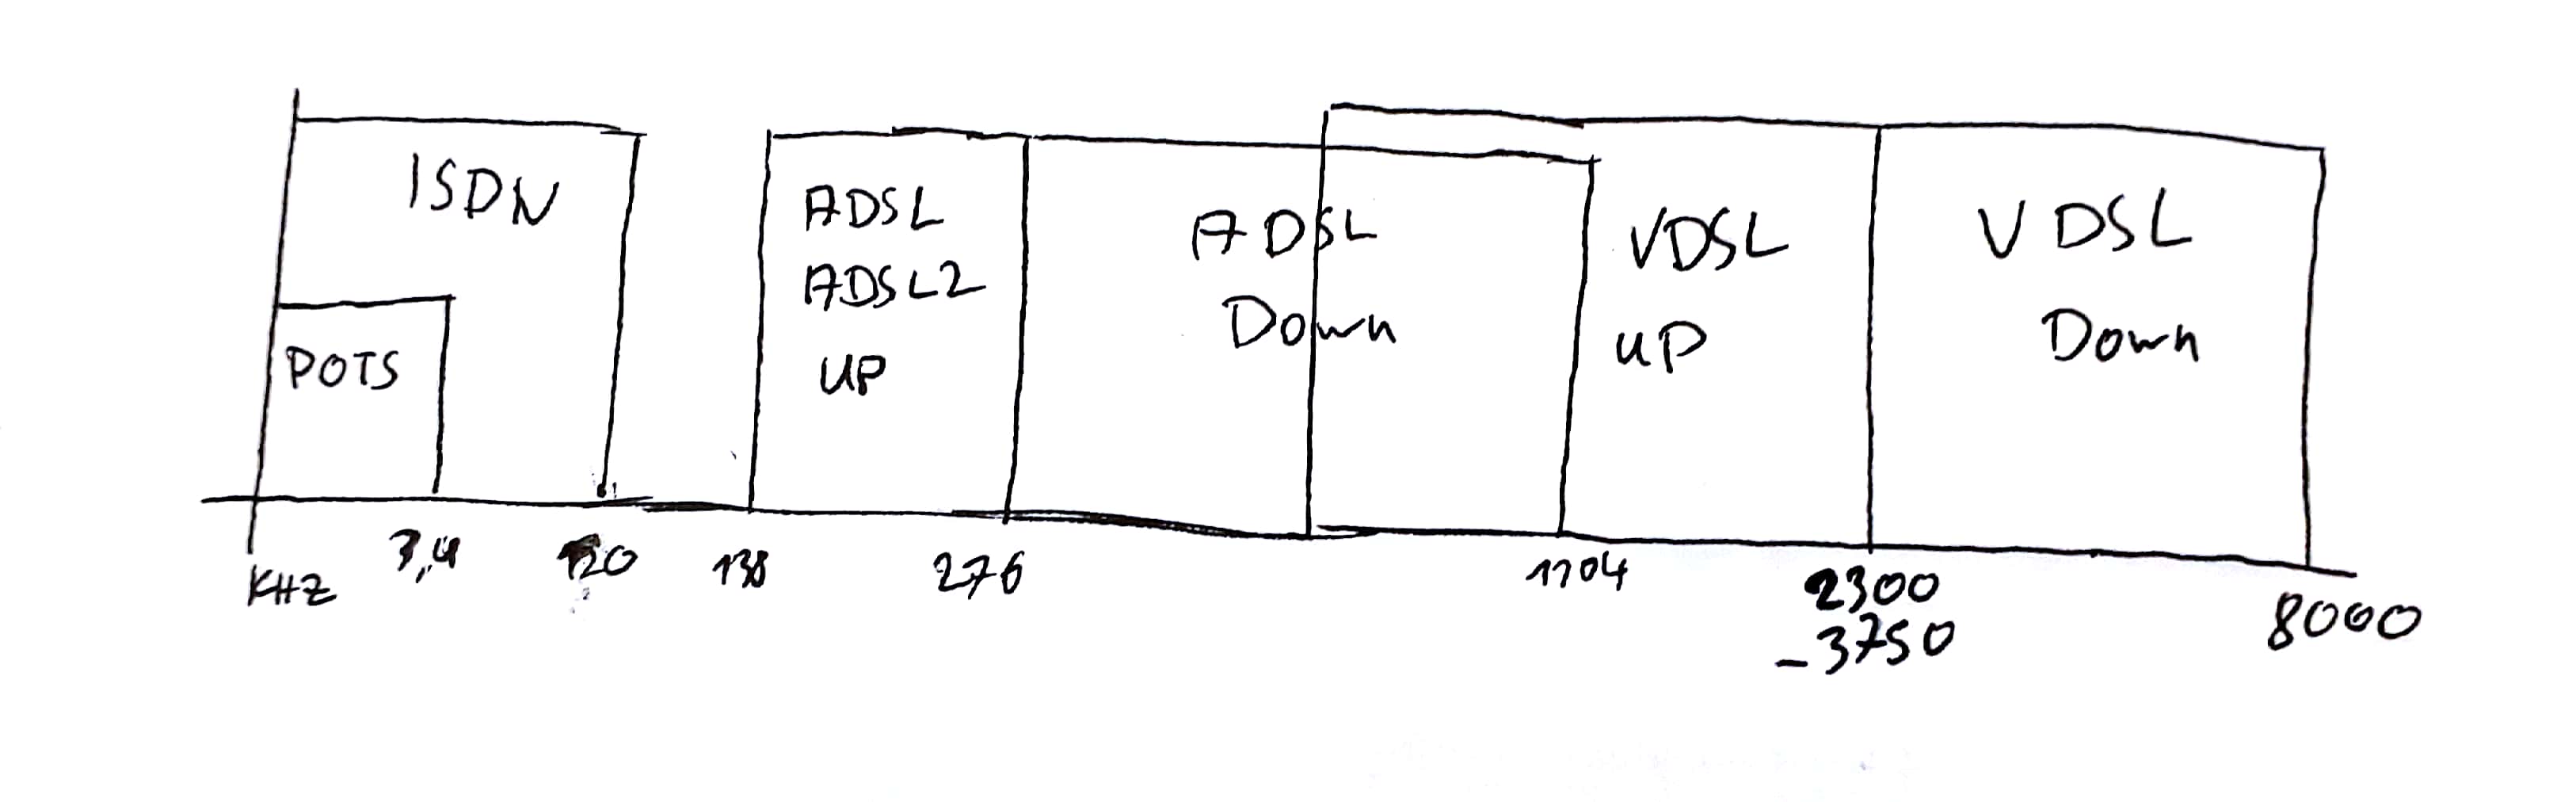 ISDN
POTS
ADSL
ADSL2
UP
ADSL
Down
VDSL
UP
VDSL
Down
KHZ
3,4
120
138
276
1104
2300
-3750
8000